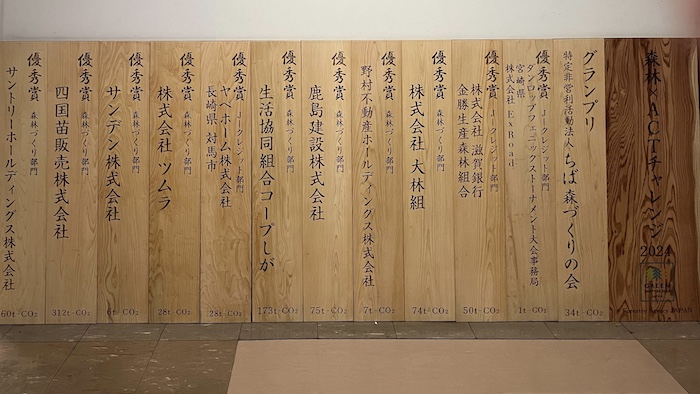 森林×ACTチャレンジ
2024
GREEN
Forestry Agency JAPAN
グランプリ
特定非営利活動法人 ちば森づくりの会
34t-CO₂
優秀賞 Jークレジット部門
タンロープフェニックストーナメント大会事務局
宮崎県
株式会社 ExRoad
1t-CO₂
優秀賞 Jークレジット部門
株式会社 滋賀銀行
金勝生産森林組合
50t-CO₂
優秀賞 森林づくり部門
株式会社 大林組
74t-CO₂
優秀賞 森林づくり部門
野村不動産ホールディングス株式会社
7t-CO₂
優秀賞 森林づくり部門
鹿島建設株式会社
75t-CO₂
優秀賞 森林づくり部門
生活協同組合コープしが
173t-CO₂
優秀賞 Jークレジット部門
ヤベホーム株式会社
長崎県 対馬市
28t-CO₂
優秀賞 森林づくり部門
株式会社 ツムラ
28t-CO₂
優秀賞 森林づくり部門
サンデン株式会社
6t-CO₂
優秀賞 森林づくり部門
四国苗販売株式会社
312t-CO₂
優秀賞 森林づくり部門
サントリーホールディングス株式会社
60t-CO₂